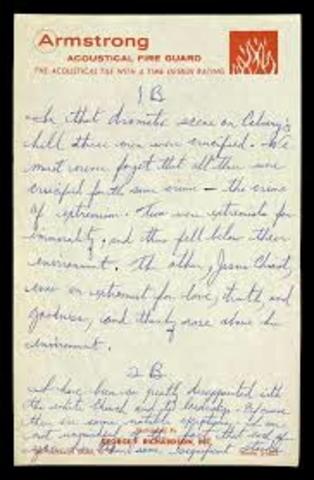 Armstrong
ACOUSTICAL FIRE GUARD
THE ACOUSTICAL TILE WITH A TIME-DESIGN RATING
1B
In that dramatic scene on Calvary's
hill three men were crucified. We
must never forget that all three were
crucified for the same crime — the crime
of extremism. Two were extremists for
immorality, and thus fell below their
environment. The other, Jesus Christ,
was an extremist for love, truth, and
goodness, and thereby rose above his
environment.
2B
I have been so greatly disappointed with
the white church and its leadership. Of course
there are some notable exceptions. I am
not unmindful of the fact that each of
GEORGE F. RICHARDSON, INC.
you some significant stands